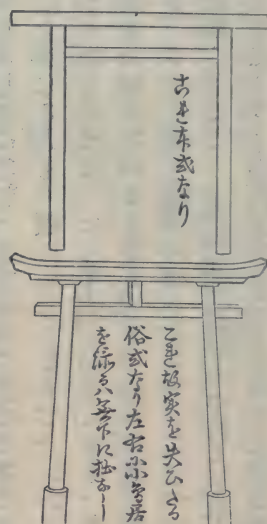 これ本式なり
これ故実を失ひたる
俗式なり左右に小鳥居
を添るハ無下に拙なし